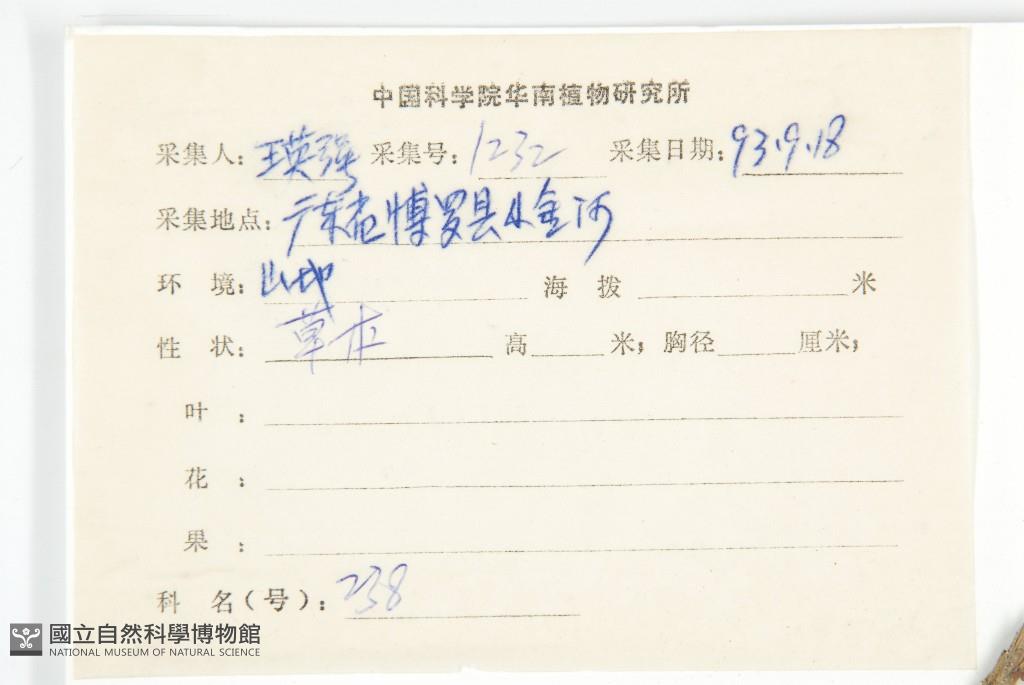 中国科学院华南植物研究所
采集人: 王英强 采集号: 1232 采集日期: 93.9.18
采集地点: 广东省博罗县小金河
环 境: 山地 海 拨 米
性 状: 草本 高 米; 胸径 厘米;
叶 :
花 :
果 :
科 名(号): 238
國立自然科學博物館
NATIONAL MUSEUM OF NATURAL SCIENCE